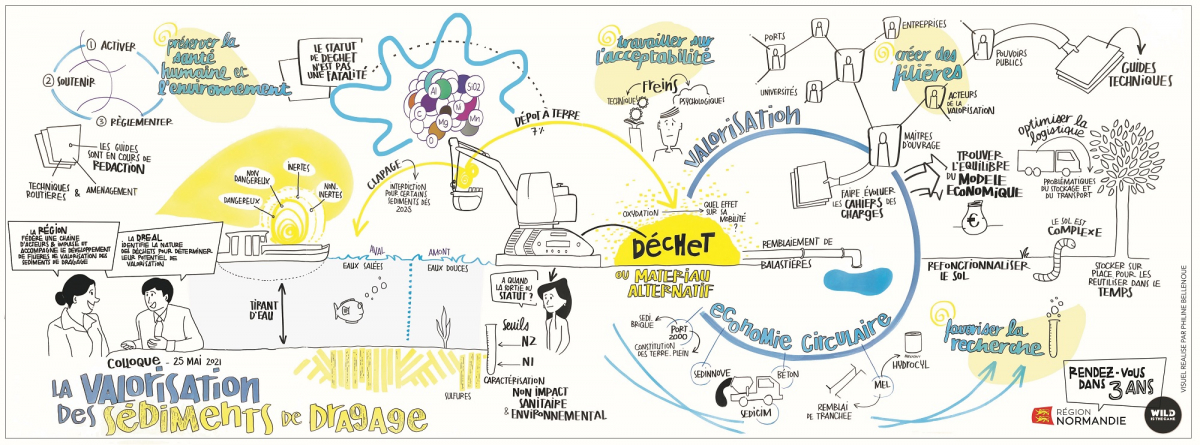 ① ACTIVER
② SOUTENIR
③ RÈGLEMENTER
préserver la
santé
humaine et
l'environnement
LE STATUT
DE DÉCHET
N'EST PAS
UNE FATALITÉ
LES GUIDES
SONT EN COURS DE
REDACTION
TECHNIQUES
ROUTIERES & AMÉNAGEMENT
DANGEREUX
NON
DANGEREUX
INERTES
NON
INERTES
LA RÉGION
FÉDÈRE UNE CHAÎNE
D'ACTEURS & IMPULSE ET
ACCOMPAGNE LE DÉVELOPPEMENT
DE FILIÈRES DE VALORISATION DES
SÉDIMENTS DE DRAGAGE
LA DREAL
IDENTIFIE LA NATURE
DES DÉCHETS POUR DÉTERMINER
LEUR POTENTIEL DE
VALORISATION
COLLOQUE - 25 MAI 2021
LA VALORISATION
DES SÉDIMENTS DE DRAGAGE
TIPANT
D'EAU
AVAL
AMONT
EAUX SALÉES
EAUX DOUCES
SULFURES
CLAPAGE
INTERDICTION
POUR CERTAINS
SÉDIMENTS DÈS
2025
Al
SiO2
C
Ni
Mg
Mn
O
DÉPOT À TERRE
7%
À QUAND
LA SORTIE DU
STATUT ?
Seuils
N2
N1
CARACTÉRISATION
NON IMPACT
SANITAIRE
& ENVIRONNEMENTAL
travailler sur
l'acceptabilité
Freins
TECHNIQUES
PSYCHOLOGIQUES
OXYDATION
QUEL EFFET
SUR SA
MOBILITÉ
?
DÉCHET
OU MATERIAU
ALTERNATIF
REMBLAIEMENT DE
BALASTIÈRES
VALORISATION
ECONOMIE CIRCULAIRE
SEDI.
BRIQUE
PORT
2000
CONSTITUTION
DES TERRE. PLEIN
SEDINNOVE
SEDICIM
BÉTON
REMBLAI
DE TRANCHÉE
MEL
HYDROCYL
PORTS
UNIVERSITÉS
ENTREPRISES
créer des
filières
POUVOIRS
PUBLICS
ACTEURS
DE LA
VALORISATION
MAÎTRES
D'OUVRAGE
GUIDES
TECHNIQUES
FAIRE ÉVOLUER
LES CAHIERS DES
CHARGES
TROUVER
L'EQUILIBRE
DU MODELE
ECONOMIQUE
€
optimiser la
logistique
PROBLÉMATIQUES
DU STOCKAGE ET DU
TRANSPORT
LE SOL EST
COMPLEXE
REFONCTIONNALISER
LE SOL
STOCKER SUR
PLACE POUR LES
RÉUTILISER DANS LE
TEMPS
favoriser la
recherche
RENDEZ-VOUS
DANS 3 ANS
RÉGION
NORMANDIE
WILD
IS THE GAME
VISUEL RÉALISÉ PAR PHILINE BELLENOUE